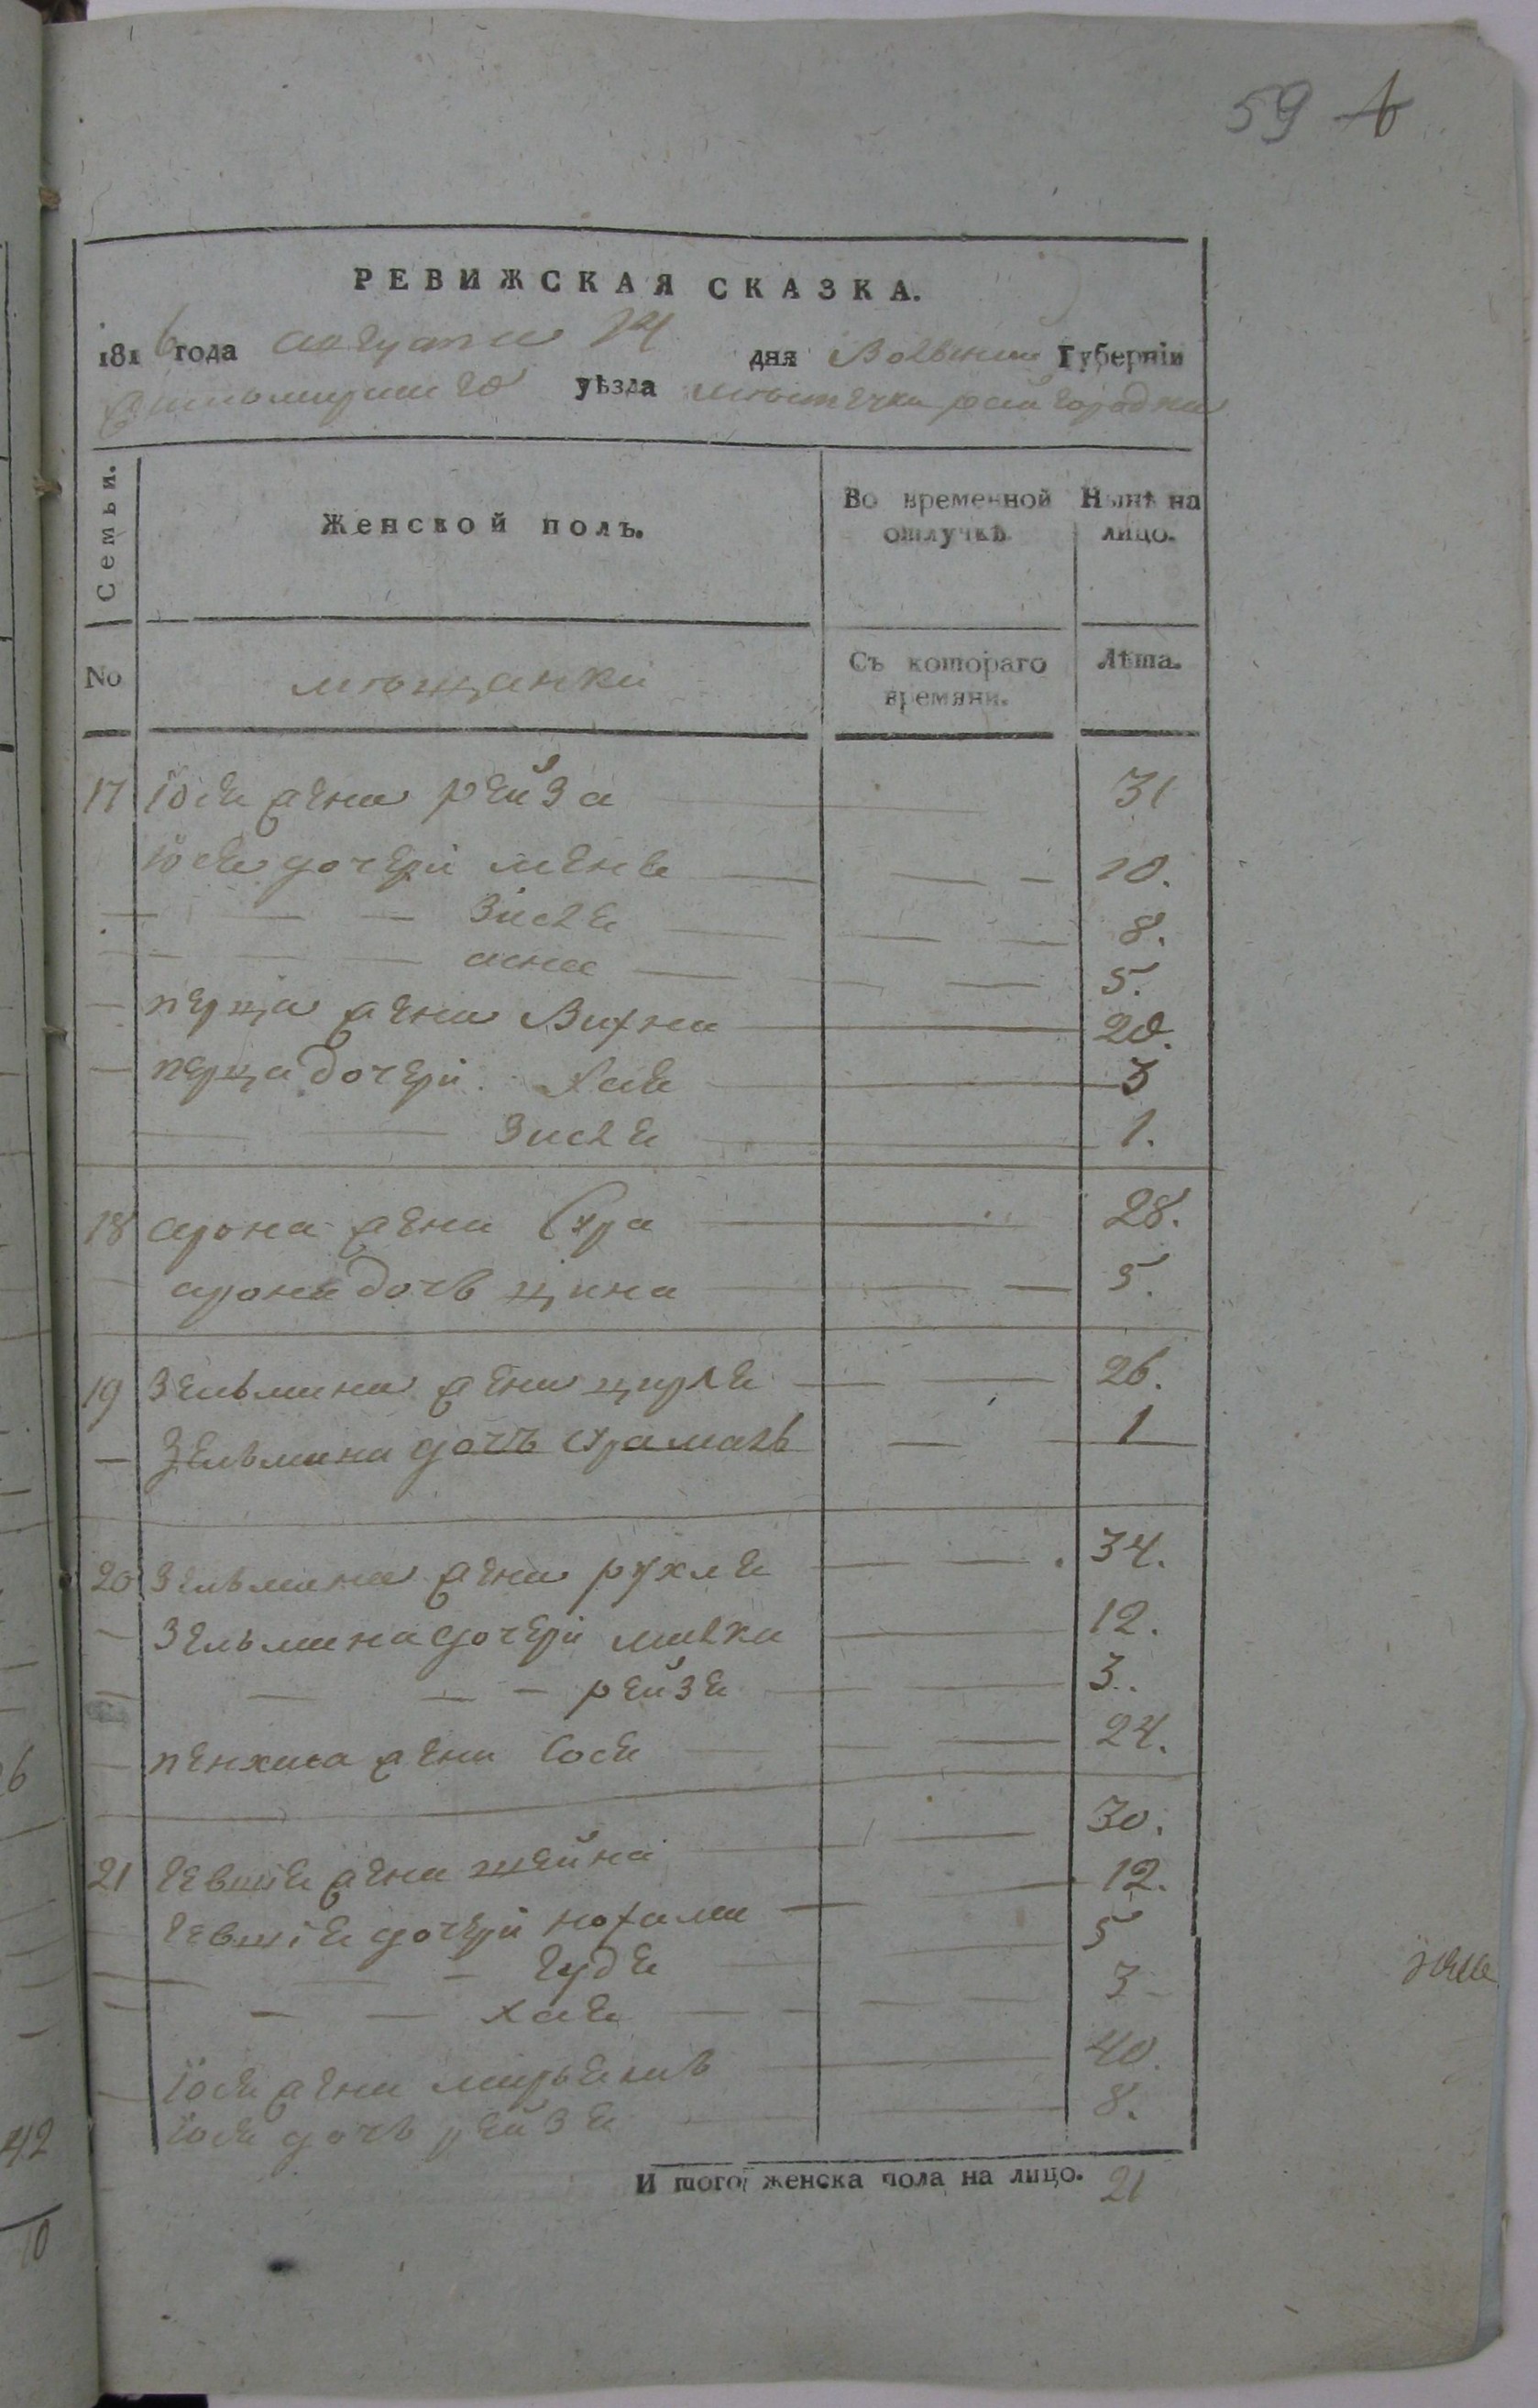 59
РЕВИЖСКАЯ СКАЗКА.
1816 года августа 14 дня Волынской Губерніи
Житомирскаго уѣзда мѣстечка райгородка
Семьи. Женской полъ. Во временной отлучкѣ. Нынѣ на лицо.
No мѣщанки Съ котораго времяни. Лѣта.
17 Іося жена рейза 31
Іося дочери меня 10.
— — — Зисля 8.
— — — асна 5.
— перца жена Вихна 20.
— перца дочери Хая 3
— — Зисля 1.
18 арона жена Сура 28.
— арона дочь цина 5.
19 Зельмана жена цирля 26.
— Зельмана дочь 1
20 Зельмана жена рухля 34.
— Зельмана дочери малка 12.
— — — — рейзя 3.
— пенхаса жена Сося 24.
21 гевшіи жена шейна 30.
гевшіи дочери нохама 12.
— — — гудя 5
— — — хая 3
— Іося жена мирьямъ 40.
Іося дочь рейзя 8.
И того женска пола на лицо. 21